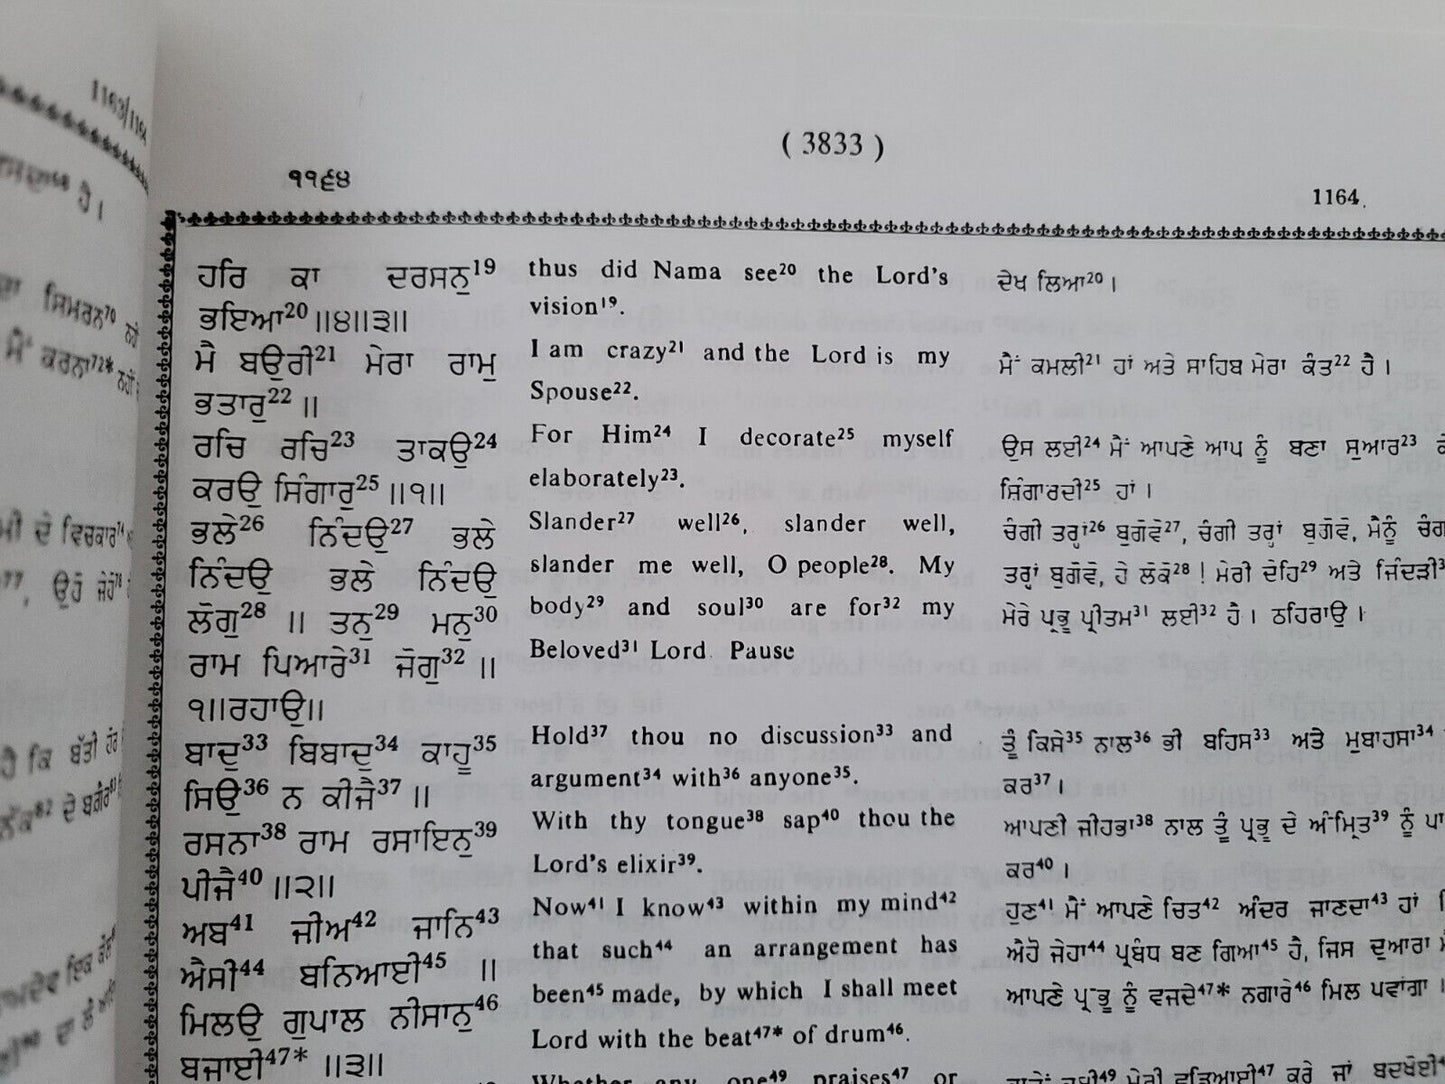 1163/1164
( 3833 )
੧੧੬੪
1164
ਹਰਿ ਕਾ ਦਰਸਨੁ19
ਭਇਆ20 ॥੪॥੩॥
ਮੈ ਬਉਰੀ21 ਮੇਰਾ ਰਾਮੁ
ਭਤਾਰੁ22 ॥
ਰਚਿ ਰਚਿ23 ਤਾਕਉ24
ਕਰਉ ਸਿੰਗਾਰੁ25 ॥੧॥
ਭਲੇ26 ਨਿੰਦਉ27 ਭਲੇ
ਨਿੰਦਉ ਭਲੇ ਨਿੰਦਉ
ਲੋਗੁ28 ॥ ਤਨੁ29 ਮਨੁ30
ਰਾਮ ਪਿਆਰੇ31 ਜੋਗੁ32 ॥
੧॥ਰਹਾਉ॥
ਬਾਦੁ33 ਬਿਬਾਦੁ34 ਕਾਹੂ35
ਸਿਉ36 ਨ ਕੀਜੈ37 ॥
ਰਸਨਾ38 ਰਾਮ ਰਸਾਇਨੁ39
ਪੀਜੈ40 ॥੨॥
ਅਬ41 ਜੀਅ42 ਜਾਨਿ43
ਐਸੀ44 ਬਨਿਆਈ45 ॥
ਮਿਲਉ ਗੁਪਾਲ ਨੀਸਾਨੁ46
ਬਜਾਈ47* ॥੩॥
thus did Nama see20 the Lord's
vision19.
I am crazy21 and the Lord is my
Spouse22.
For Him24 I decorate25 myself
elaborately23.
Slander27 well26, slander well,
slander me well, O people28. My
body29 and soul30 are for32 my
Beloved31 Lord Pause
Hold37 thou no discussion33 and
argument34 with36 anyone35.
With thy tongue38 sap40 thou the
Lord's elixir39.
Now41 I know43 within my mind42
that such44 an arrangement has
been45 made, by which I shall meet
Lord with the beat47* of drum46.
Whether any one49 praises47 or
ਦੇਖ ਲਿਆ20।
ਮੈਂ ਕਮਲੀ21 ਹਾਂ ਅਤੇ ਸਾਹਿਬ ਮੇਰਾ ਕੰਤ22 ਹੈ।
ਉਸ ਲਈ24 ਮੈਂ ਆਪਣੇ ਆਪ ਨੂੰ ਬਣਾ ਸੁਆਰ23
ਸ਼ਿੰਗਾਰਦੀ25 ਹਾਂ।
ਚੰਗੀ ਤਰ੍ਹਾਂ26 ਬੁਗੋਵੋ27, ਚੰਗੀ ਤਰ੍ਹਾਂ ਬੁਗੋਵੋ, ਮੈਨੂੰ
ਤਰ੍ਹਾਂ ਬੁਗੋਵੋ, ਹੇ ਲੋਕੋ28! ਮੇਰੀ ਦੇਹਿ29 ਅਤੇ ਜਿੰਦੜੀ
ਮੇਰੇ ਪ੍ਰਭੂ ਪ੍ਰੀਤਮ31 ਲਈ32 ਹੈ। ਠਹਿਰਾਉ।
ਤੂੰ ਕਿਸੇ35 ਨਾਲ36 ਭੀ ਬਹਿਸ33 ਅਤੇ ਮੁਬਾਹਸਾ34
ਕਰ37।
ਆਪਣੀ ਜੀਹਭਾ38 ਨਾਲ ਤੂੰ ਪ੍ਰਭੂ ਦੇ ਅੰਮ੍ਰਿਤ39 ਨੂੰ
ਕਰ40।
ਹੁਣ41 ਮੈਂ ਆਪਣੇ ਚਿਤ42 ਅੰਦਰ ਜਾਣਦਾ43 ਹਾਂ
ਐਹੋ ਜੇਹਾ44 ਪ੍ਰਬੰਧ ਬਣ ਗਿਆ45 ਹੈ, ਜਿਸ ਦੁਆਰਾ
ਆਪਣੇ ਪ੍ਰਭੂ ਨੂੰ ਵਜਦੇ47* ਨਗਾਰੇ46 ਮਿਲ ਪਵਾਂਗਾ।
ਮੇਰੀ ਵਡਿਆਈ47 ਕਰੇ ਜਾਂ ਬਦਖੋਈ